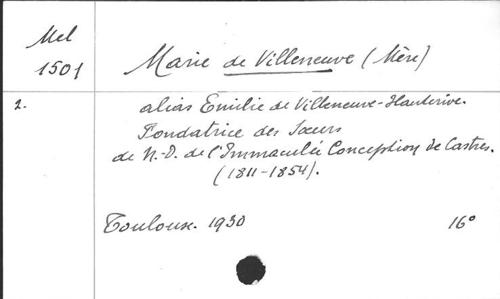 Mel
1501
Marie de Villeneuve (Mère)
2.
alias Emilie de Villeneuve-Hauterive.
Fondatrice des Sœurs
de N.-D. de l'Immaculée Conception de Castres.
(1811-1854).
Toulouse. 1930
16°